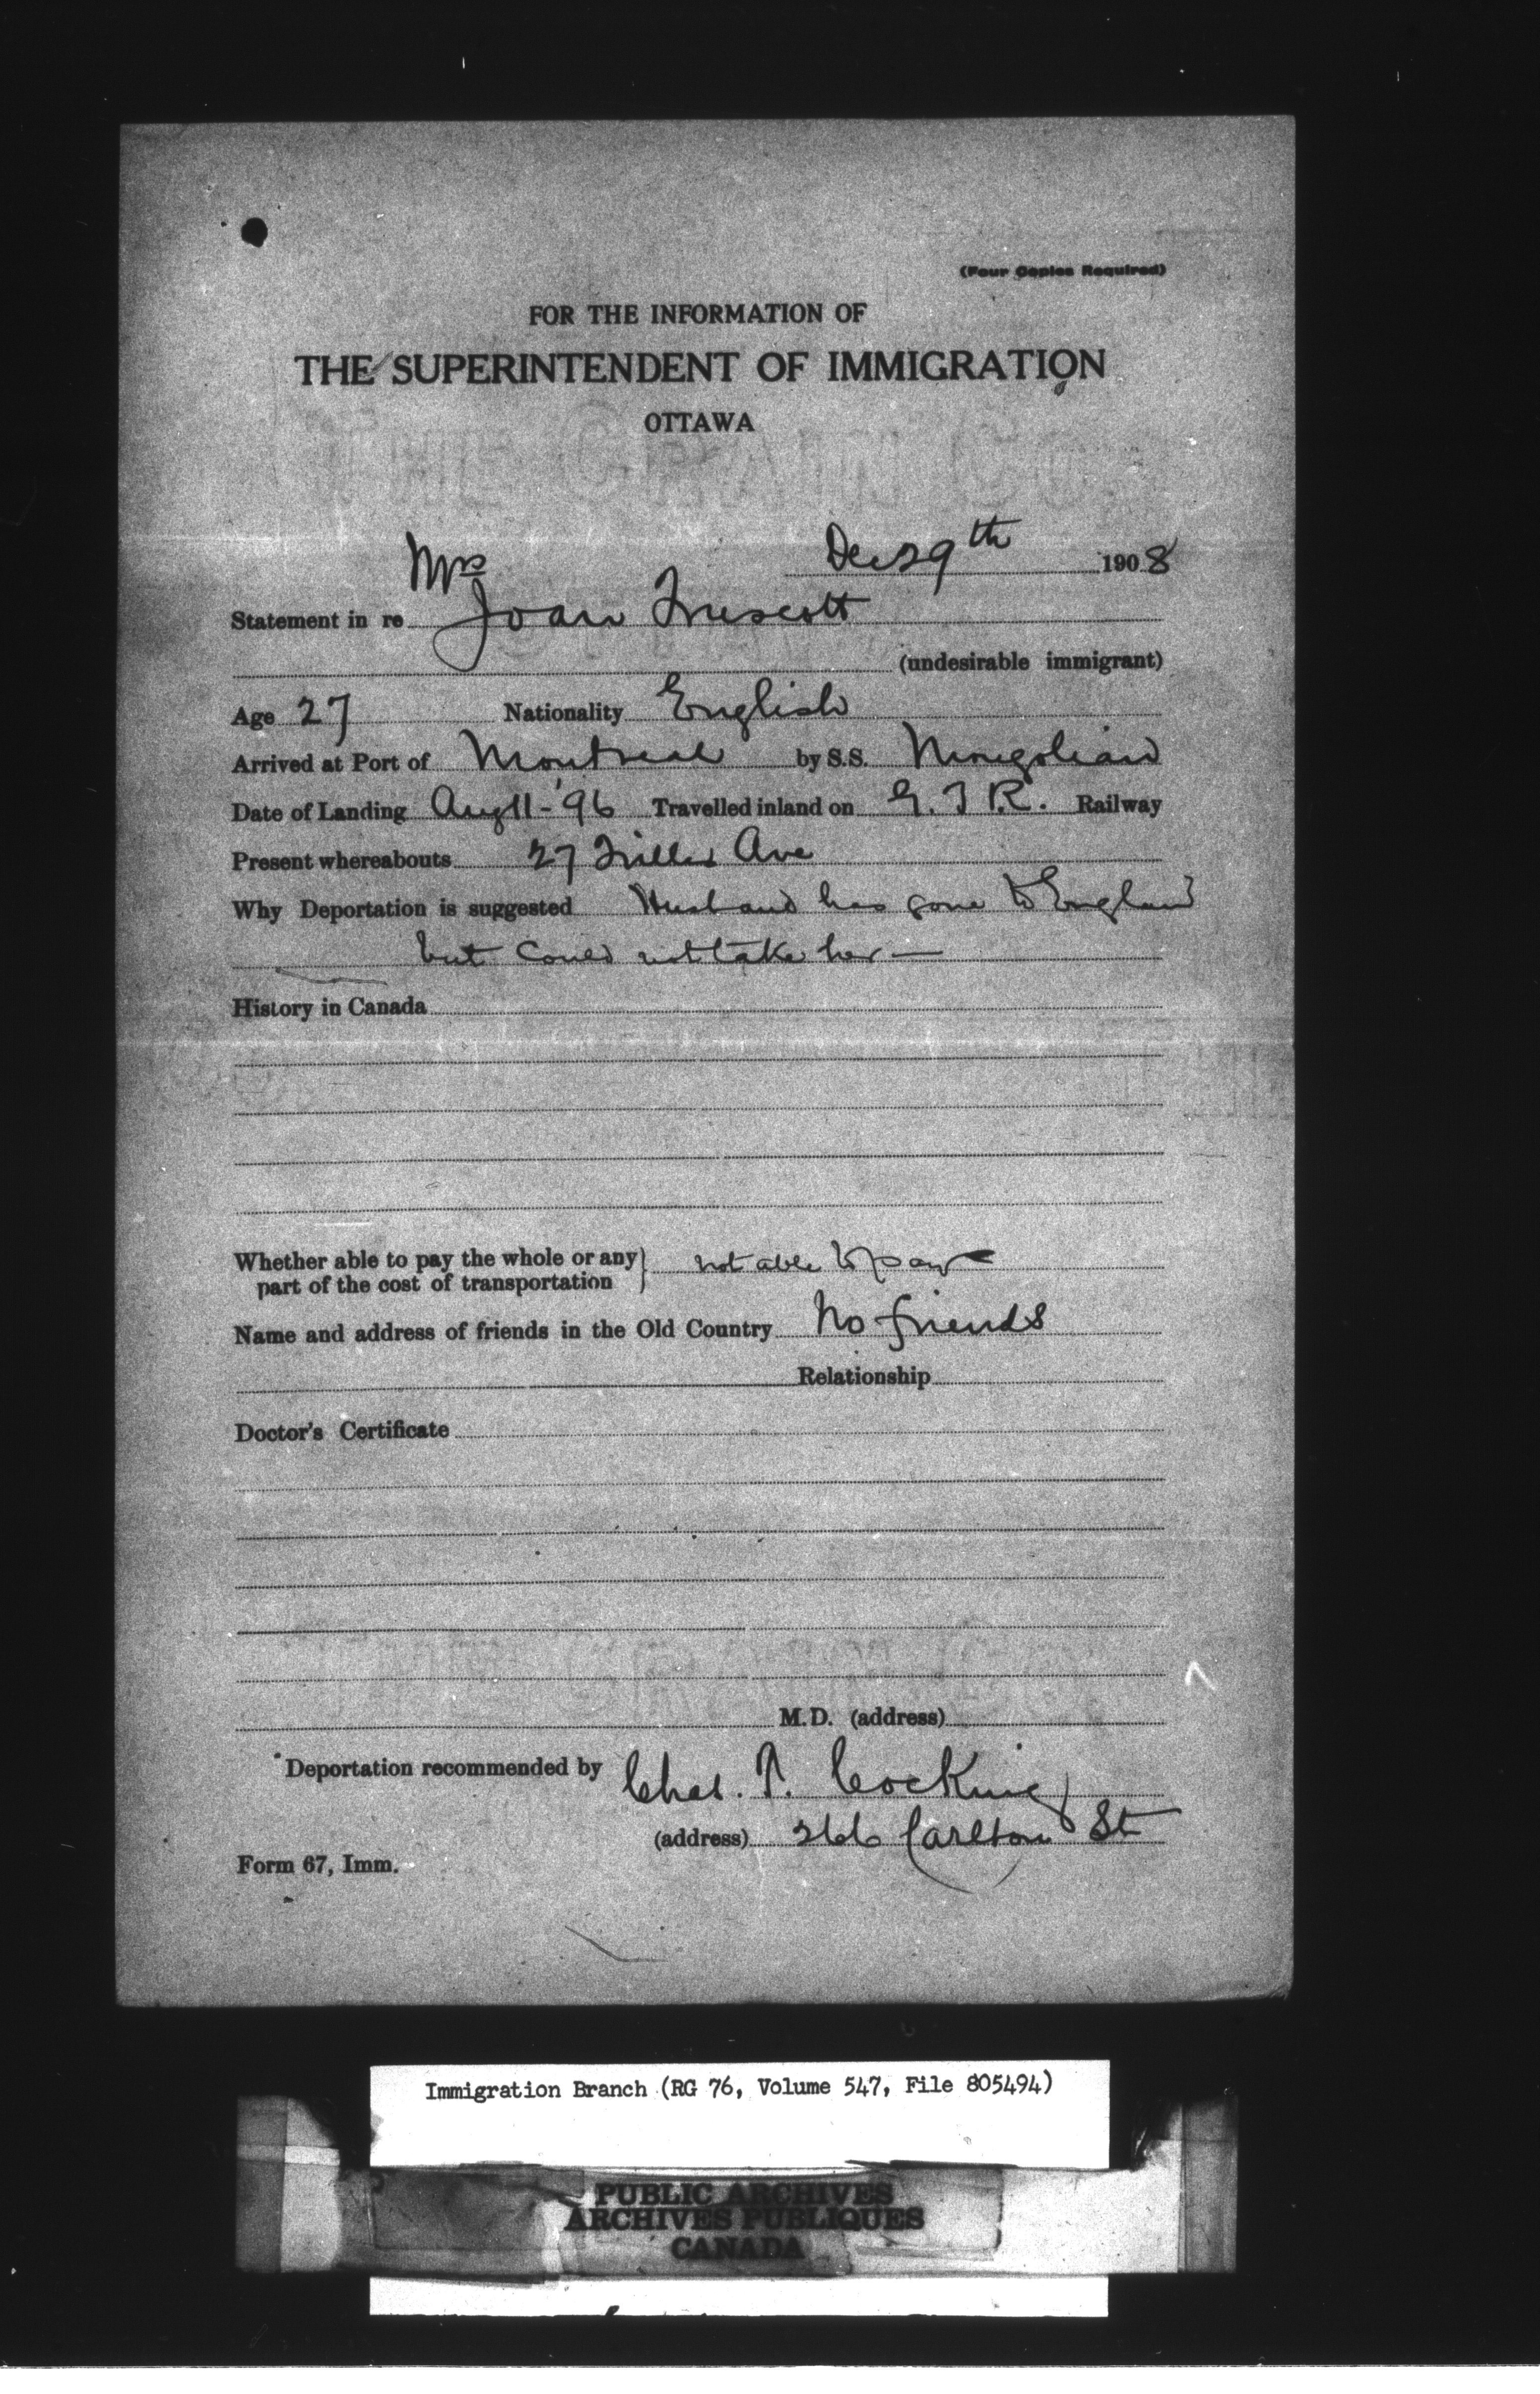 (Four Copies Required)
FOR THE INFORMATION OF
THE SUPERINTENDENT OF IMMIGRATION
OTTAWA
Dec 29th 1908
Mrs
Statement in re Joan Truscott
(undesirable immigrant)
Age 27 Nationality English
Arrived at Port of Montreal by S.S. Mongolian
Date of Landing Aug 11-'96 Travelled inland on G.T.R. Railway
Present whereabouts 27 Ave
Why Deportation is suggested Husband has gone to England
but could not take her —
History in Canada
Whether able to pay the whole or any } not able to pay
part of the cost of transportation
Name and address of friends in the Old Country No friends
Relationship
Doctor's Certificate
M.D. (address)
Deportation recommended by Chas. P. Cocking
(address) 266 Carlton St
Form 67, Imm.
Immigration Branch (RG 76, Volume 547, File 805494)
PUBLIC ARCHIVES
ARCHIVES PUBLIQUES
CANADA